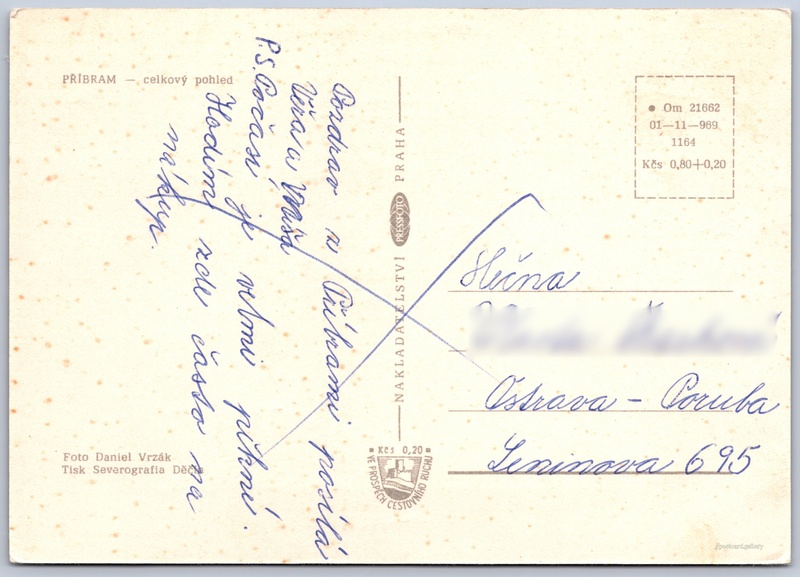 PŘÍBRAM — celkový pohled
Pozdrav z Příbrami posílá
Věra a
P.S. Počasí je velmi pěkné.
Hodím zde často na
nákup.
Foto Daniel Vrzák
Tisk Severografia Děčín
NAKLADATELSTVÍ PRESSFOTO PRAHA
Kčs 0,20
VE PROSPĚCH CESTOVNÍHO RUCHU
Om 21662
01—11—969
1164
Kčs 0,80+0,20
Slečna
Ostrava - Poruba
Leninova 695
postcard.gallery